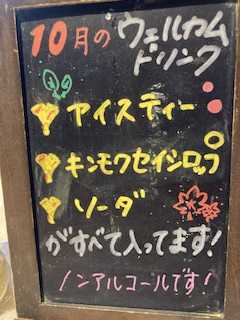 10月の ウェルカム
ドリンク
アイスティー
キンモクセイシロップ
ソーダ
がすべて入ってます!
ノンアルコールです!